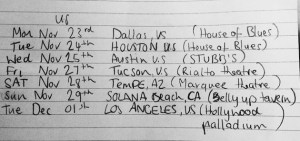 US
Mon Nov 23rd Dallas, US (House of Blues)
Tue Nov 24th HOUSTON US (House of Blues)
Wed Nov 25th Austin US (STUBB'S)
Fri Nov 27th Tucson, US (Rialto theatre)
SAT Nov 28th TEMPE, AZ (Marquee theatre)
Sun Nov 29th SOLANA Beach, CA (Belly up tavern)
Tue Dec 01st LOS ANGELES, US (Hollywood
palladium)